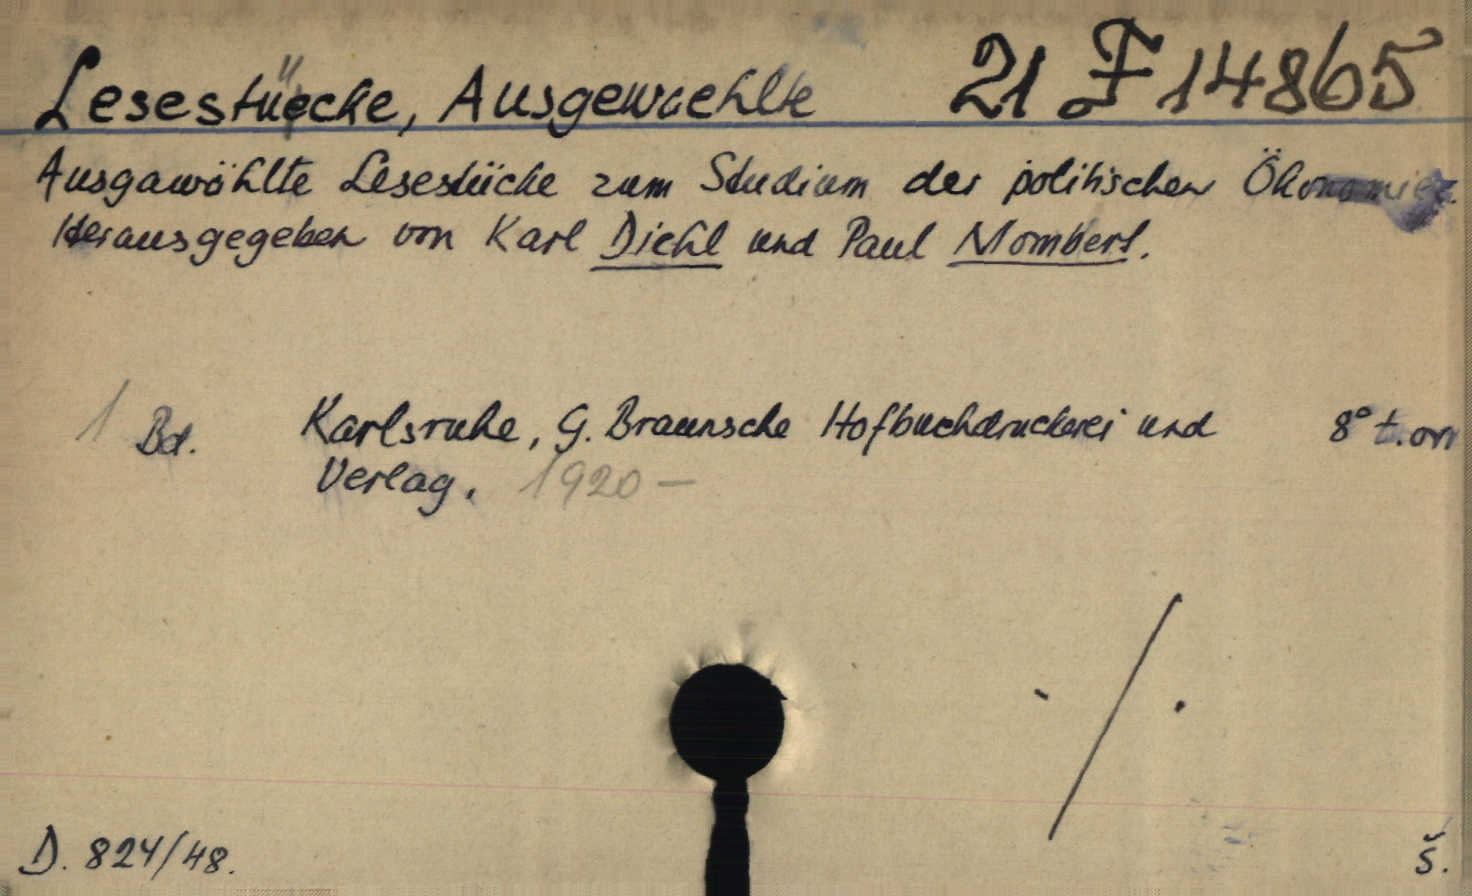 Lesestüecke, Ausgewaehlte 21 F 14865
Ausgawählte Lesestücke zum Studium der politischen Ökonomie.
Herausgegeben von Karl Diehl und Paul Mombert.
1 Bd. Karlsruhe, G. Braunsche Hofbuchdruckerei und 8° t.
Verlag. 1920 —
./.
D. 824/48. Š.